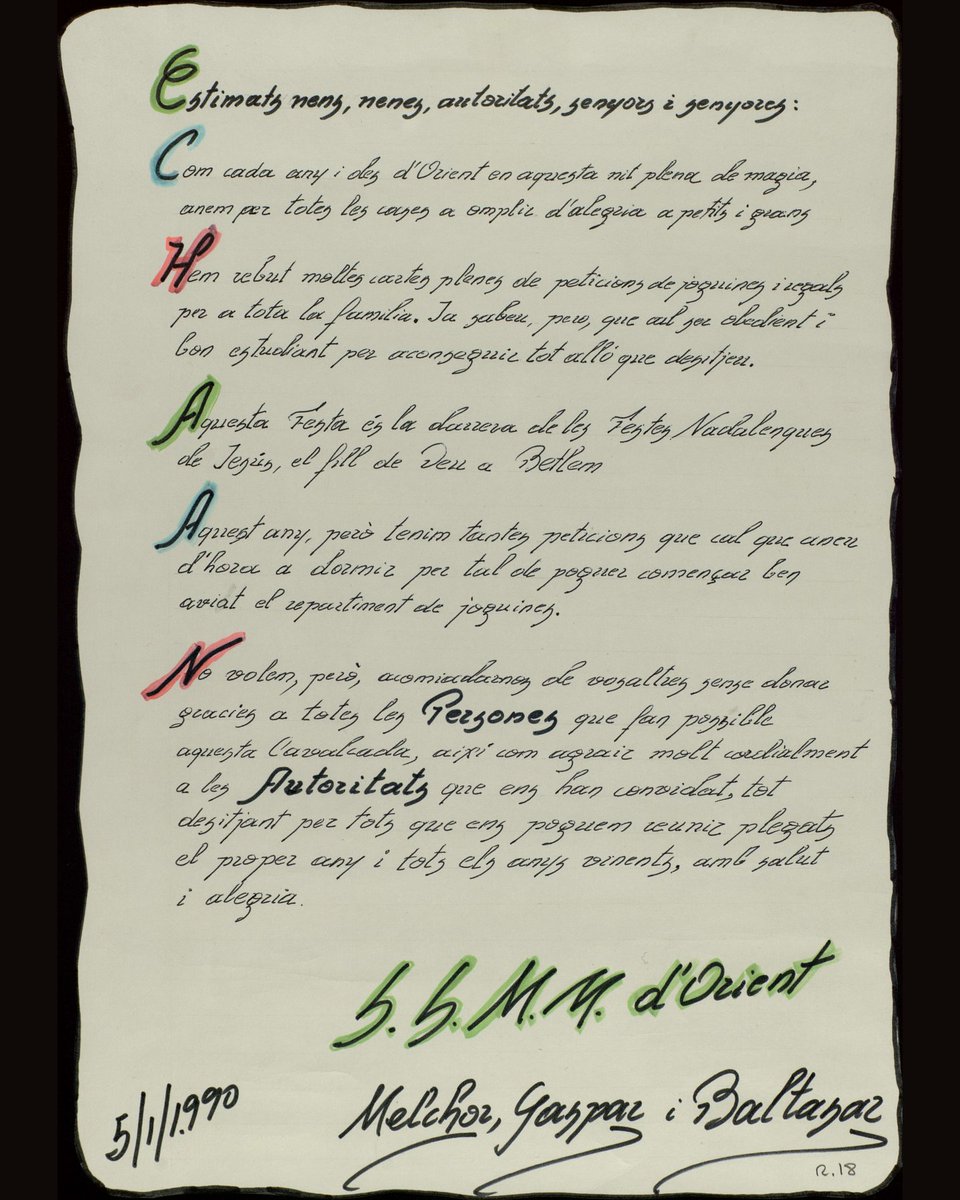 Estimats nens, nenes, autoritats, senyors i senyores:
Com cada any i des d'Orient en aquesta nit plena de magia,
anem per totes les cases a omplir d'alegria a petits i grans
Hem rebut moltes cartes plenes de peticions de joguines i regals
per a tota la familia. Ja sabeu, pero, que cal ser obedient i
bon estudiant per aconseguir tot alló que desitjeu.
Aquesta Festa és la darrera de les Festes Nadalenques
de Jesús, el fill de Deu a Betlem
Aquest any, però tenim tantes peticions que cal que aneu
d'hora a dormir per tal de poguer començar ben
aviat el repartiment de joguines.
No volem, però, acomiadarnos de vosaltres sense donar
gracies a totes les Persones que fan possible
aquesta Cavalcada, així com agrair molt cordialment
a les Autoritats que ens han convidat, tot
desitjant per tots que ens poguem reunir plegats
el proper any i tots els anys vinents, amb salut
i alegria.
S.S.M.M. d'Orient
5/1/1.990
Melchor, Gaspar i Baltasar
R.18